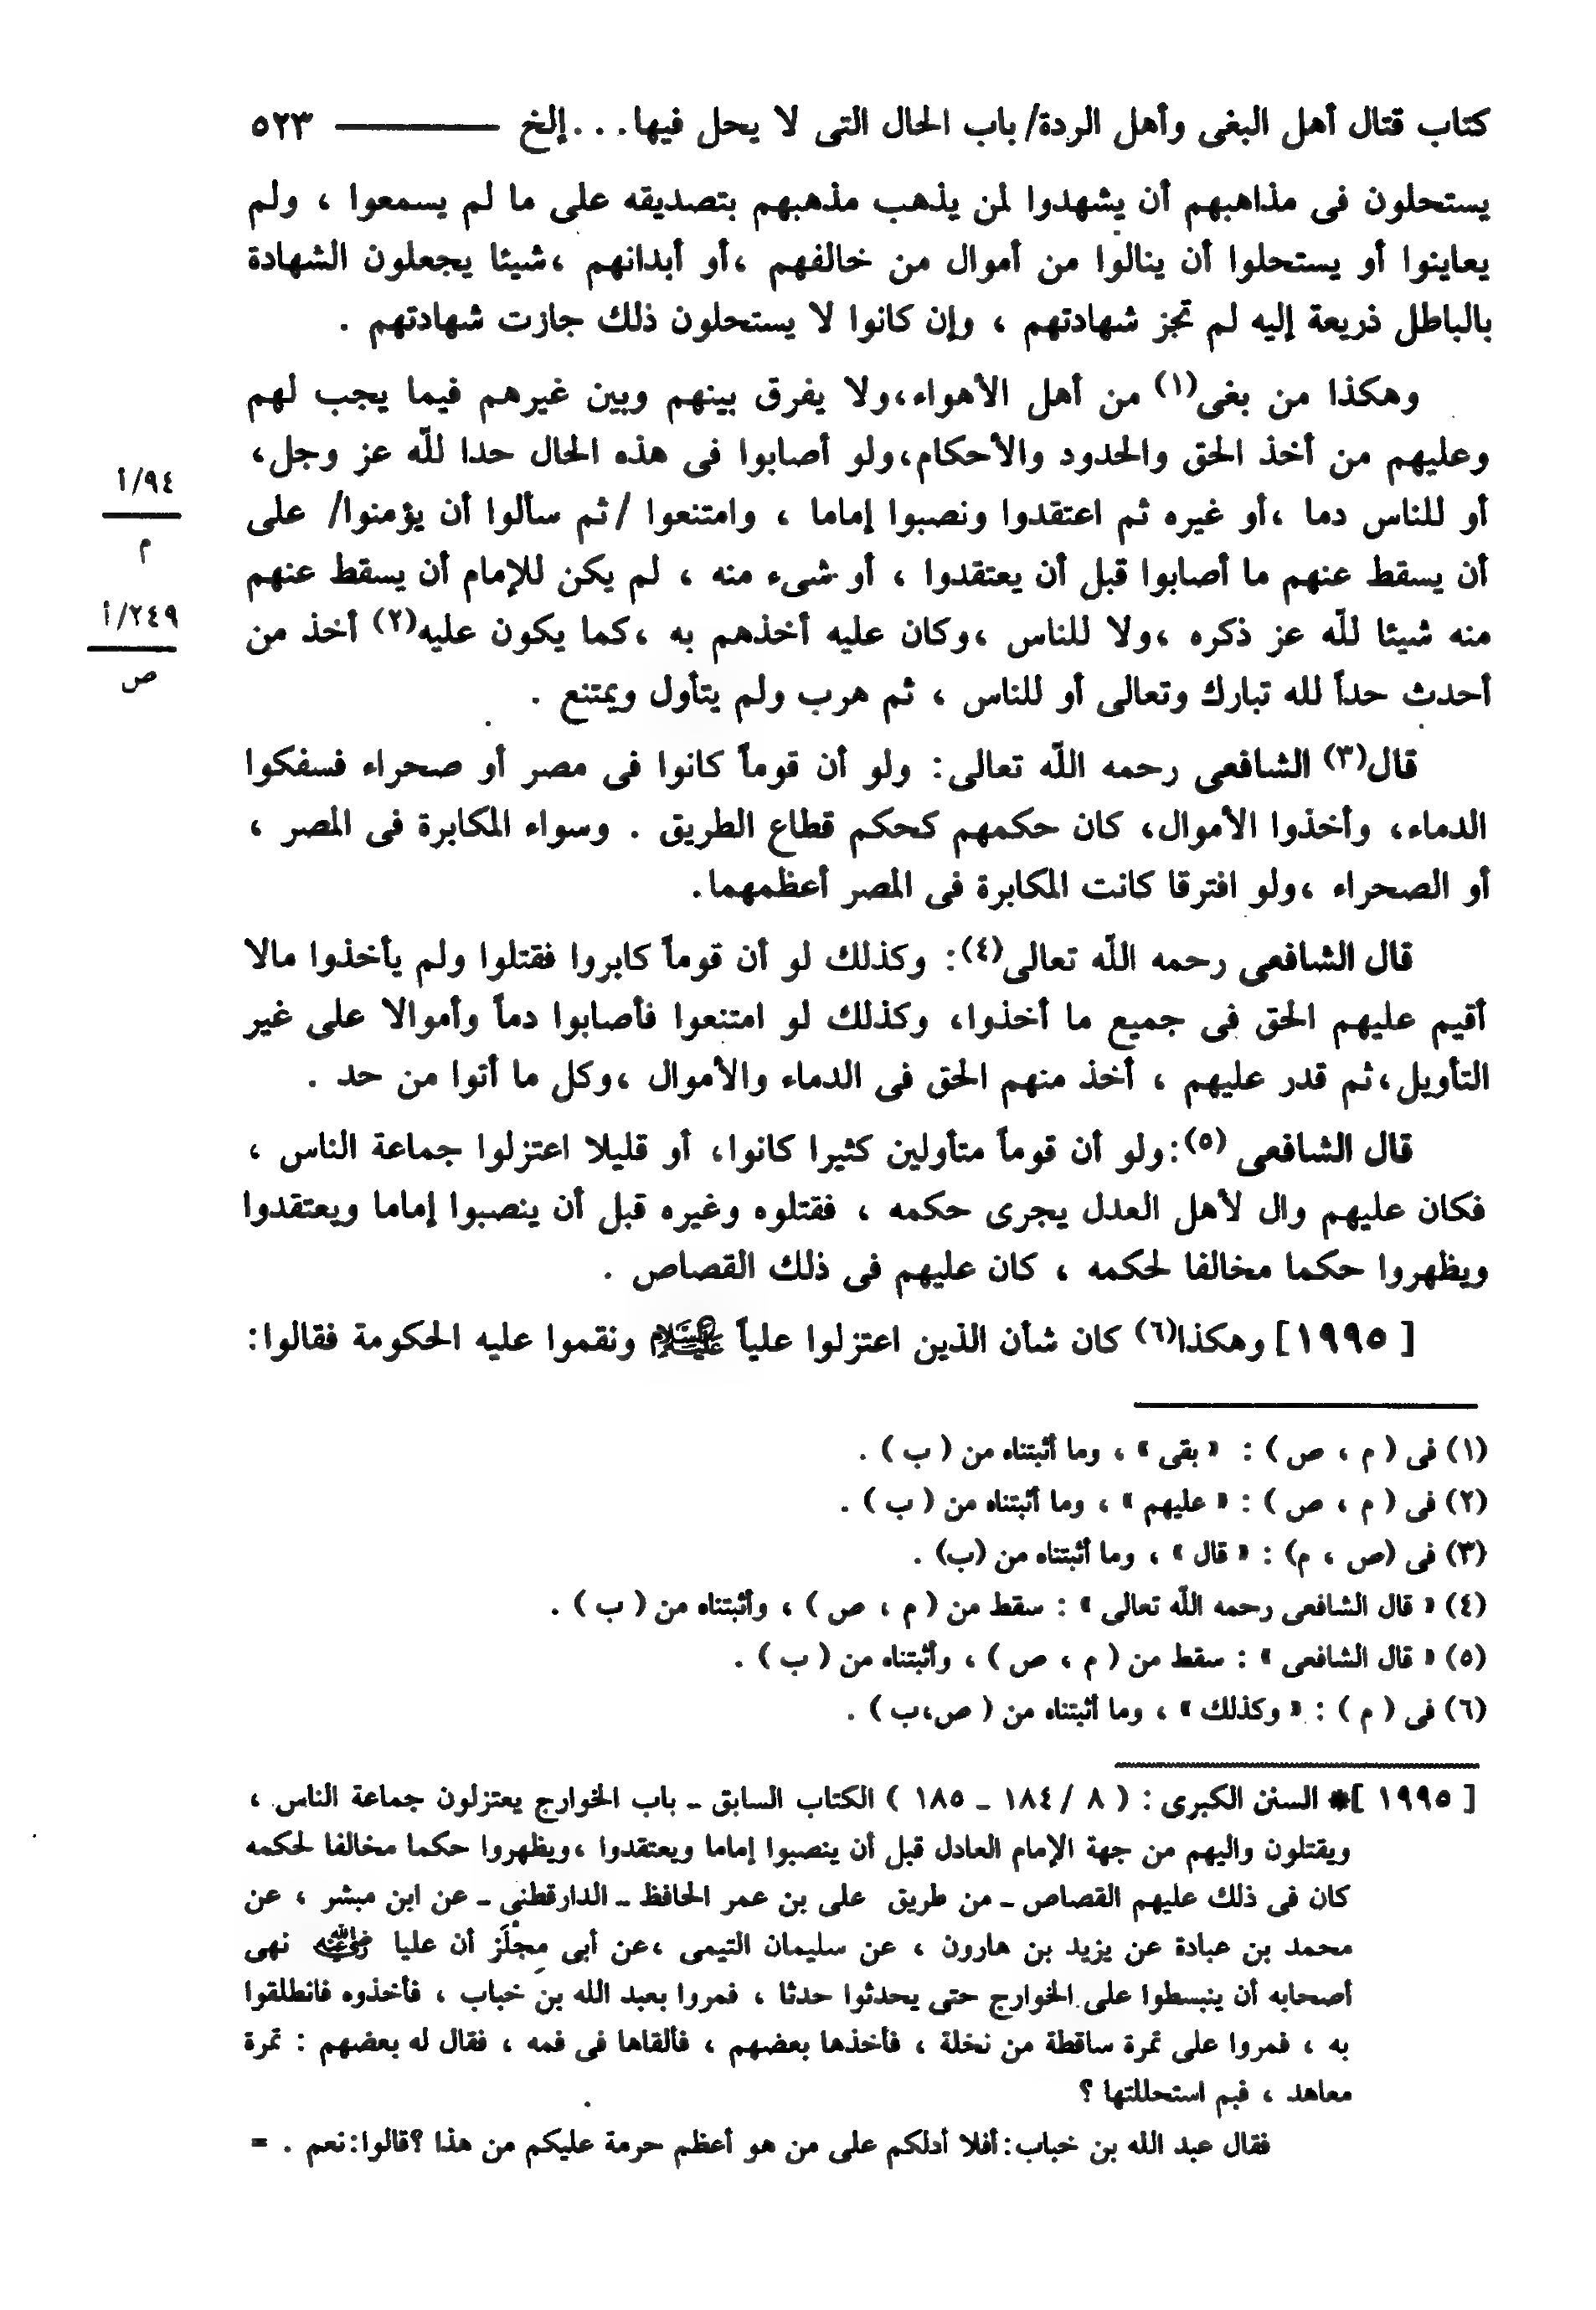 كتاب قتال أهل البغى وأهل الردة/ باب الحال التى لا يحل فيها. . .إلخ ——— ٥٢٣
يستحلون فى مذاهبهم أن يشهدوا لمن يذهب مذهبهم بتصديقه على ما لم يسمعوا ، ولم
يعاينوا أو يستحلوا أن ينالوا من أموال من خالفهم ،أو أبدانهم ،شيئا يجعلون الشهادة
بالباطل ذريعة إليه لم تجز شهادتهم ، وإن كانوا لا يستحلون ذلك جازت شهادتهم .
وهكذا من بغى(١) من أهل الأهواء،ولا يفرق بينهم وبين غيرهم فيما يجب لهم
وعليهم من أخذ الحق والحدود والأحكام،ولو أصابوا فى هذه الحال حدا للّه عز وجل،
٩٤/أ
م
أو للناس دما ،أو غيره ثم اعتقدوا ونصبوا إماما ، وامتنعوا /ثم سألوا أن يؤمنوا/ على
أن يسقط عنهم ما أصابوا قبل أن يعتقدوا ، أو شىء منه ، لم يكن للإمام أن يسقط عنهم
٢٤٩/أ
ص
منه شيئا للّه عز ذكره ،ولا للناس ،وكان عليه أخذهم به ،كما يكون عليه(٢) أخذ من
أحدث حداً لله تبارك وتعالى أو للناس ، ثم هرب ولم يتأول ويمتنع .
قال(٣) الشافعى رحمه اللّه تعالى: ولو أن قوماً كانوا فى مصر أو صحراء فسفكوا
الدماء، وأخذوا الأموال، كان حكمهم كحكم قطاع الطريق . وسواء المكابرة فى المصر ،
أو الصحراء ،ولو افترقا كانت المكابرة فى المصر أعظمهما.
قال الشافعى رحمه اللّه تعالى(٤): وكذلك لو أن قوماً كابروا فقتلوا ولم يأخذوا مالا
أقيم عليهم الحق فى جميع ما أخذوا، وكذلك لو امتنعوا فأصابوا دماً وأموالا على غير
التأويل،ثم قدر عليهم ، أخذ منهم الحق فى الدماء والأموال ،وكل ما أتوا من حد .
قال الشافعى (٥):ولو أن قوماً متأولين كثيرا كانوا، أو قليلا اعتزلوا جماعة الناس ،
فكان عليهم وال لأهل العدل يجرى حكمه ، فقتلوه وغيره قبل أن ينصبوا إماما ويعتقدوا
ويظهروا حكما مخالفا لحكمه ، كان عليهم فى ذلك القصاص .
[ ١٩٩٥] وهكذا(٦) كان شأن الذين اعتزلوا علياً عليه السلام ونقموا عليه الحكومة فقالوا:
(١) فى ( م ، ص ) : « بقى » ، وما أثبتناه من ( ب ) .
(٢) فى ( م ، ص ) : « عليهم » ، وما أثبتناه من ( ب ) .
(٣) فى (ص ، م) : « قال » ، وما أثبتناه من (ب) .
(٤) « قال الشافعى رحمه اللّه تعالى » : سقط من ( م ، ص ) ، وأثبتناه من ( ب ) .
(٥) « قال الشافعى » : سقط من ( م ، ص ) ، وأثبتناه من ( ب ) .
(٦) فى ( م ) : « وكذلك » ، وما أثبتناه من ( ص،ب ) .
[ ١٩٩٥ ]* السنن الكبرى : ( ٨ / ١٨٤ ـ ١٨٥ ) الكتاب السابق ـ باب الخوارج يعتزلون جماعة الناس ،
ويقتلون واليهم من جهة الإمام العادل قبل أن ينصبوا إماما ويعتقدوا ،ويظهروا حكما مخالفا لحكمه
كان فى ذلك عليهم القصاص ـ من طريق على بن عمر الحافظ ـ الدارقطنى ـ عن ابن مبشر ، عن
محمد بن عبادة عن يزيد بن هارون ، عن سليمان التيمى ،عن أبى مِجْلَز أن عليا رضي الله عنه نهى
أصحابه أن ينبسطوا على الخوارج حتى يحدثوا حدثا ، فمروا بعبد الله بن خباب ، فأخذوه فانطلقوا
به ، فمروا على تمرة ساقطة من نخلة ، فأخذها بعضهم ، فألقاها فى فمه ، فقال له بعضهم : تمرة
معاهد ، فبم استحللتها ؟
فقال عبد الله بن خباب:أفلا أدلكم على من هو أعظم حرمة عليكم من هذا ؟قالوا:نعم . =